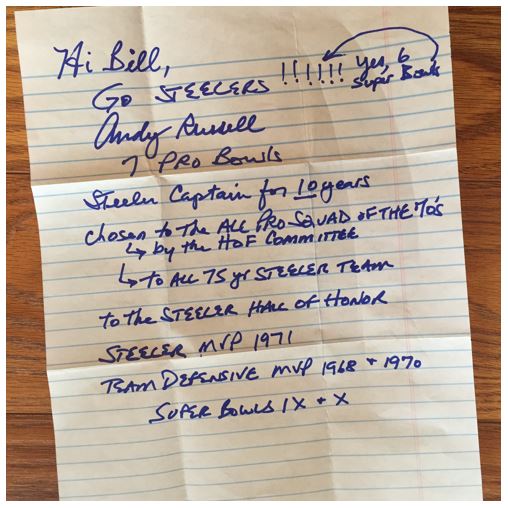 Hi Bill,
Go STEELERS !!!!!! yes, 6
Super Bowls
Andy Russell
7 PRO Bowls
Steeler Captain for 10 years
chosen to the ALL PRO SQUAD OF THE 70's
↳ by the HOF COMMITTEE
↳ to ALL 75 yr STEELER TEAM
to the STEELER HALL OF HONOR
STEELER MVP 1971
TEAM DEFENSIVE MVP 1968 + 1970
SUPER BOWLS IX + X